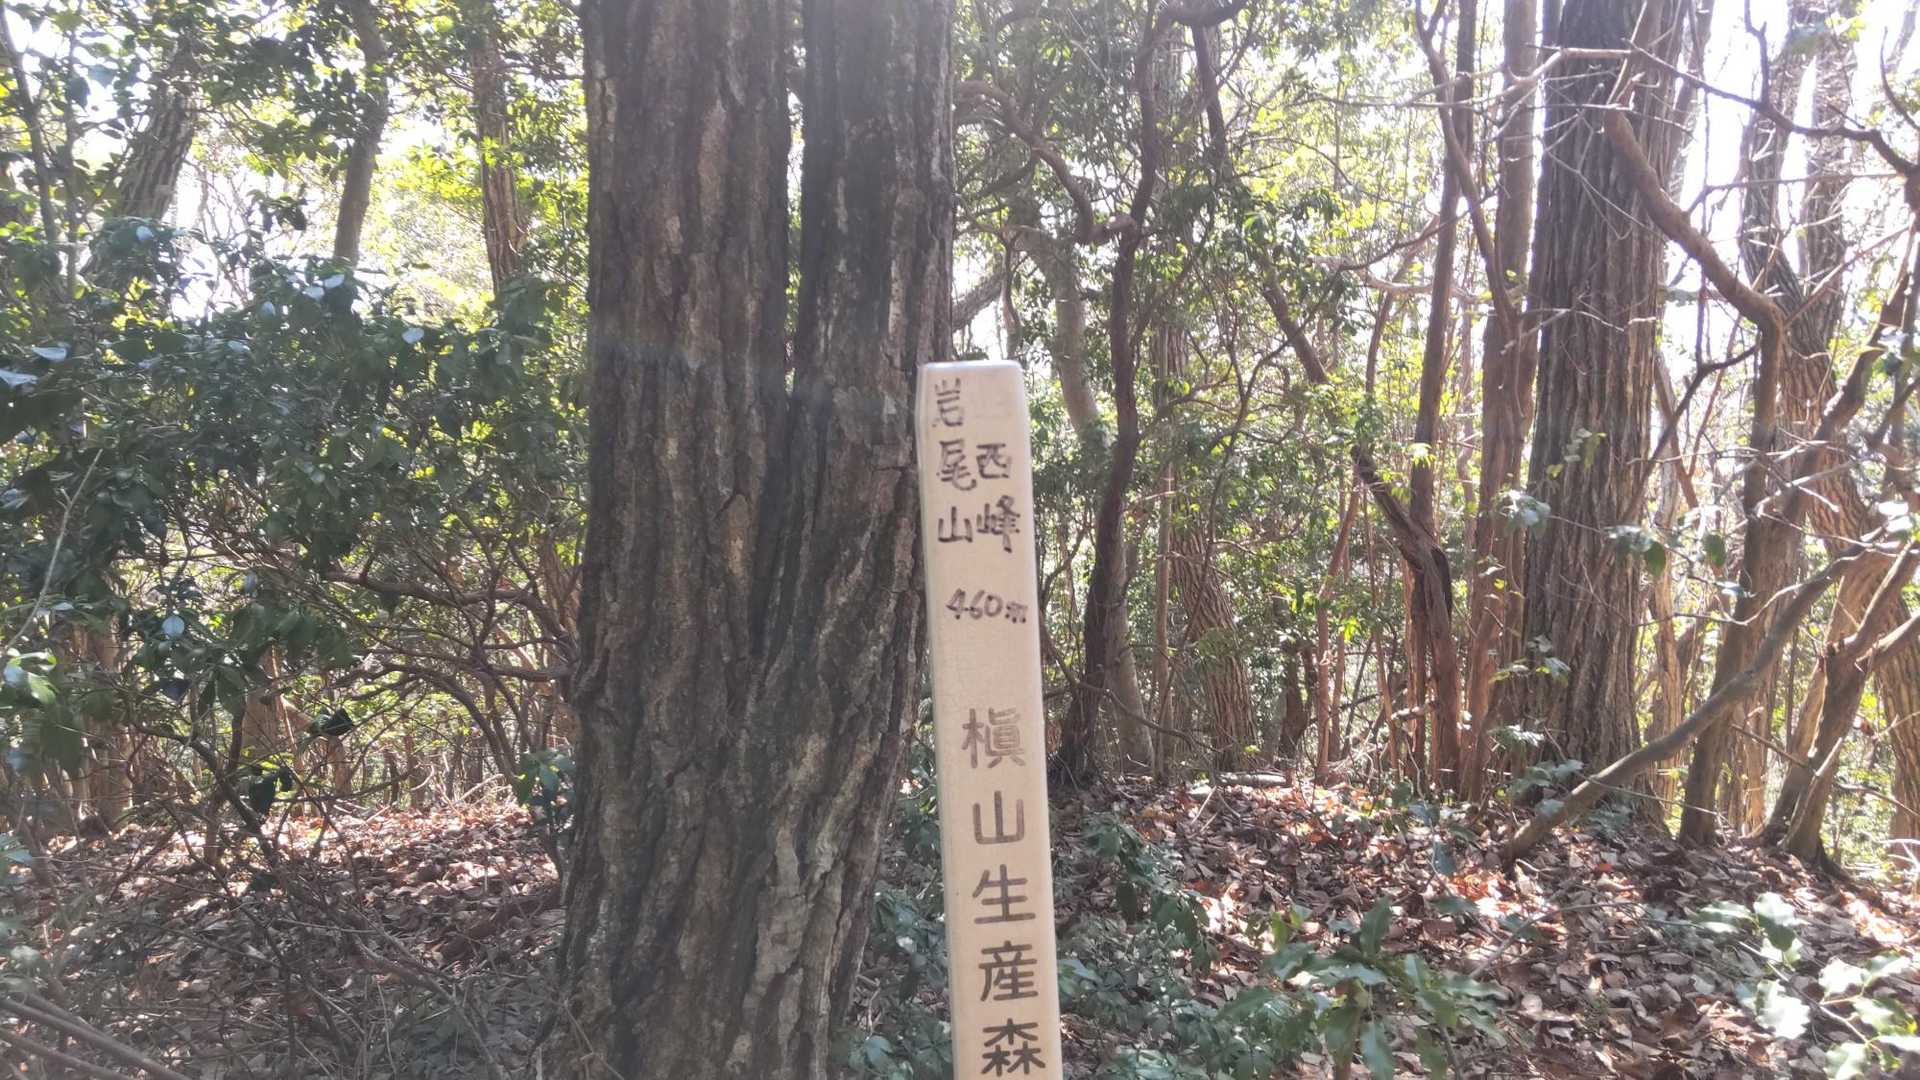 岩尾山
西峰
460m
槇山生産森